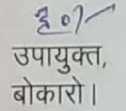 ह० /-
उपायुक्त,
बोकारो।